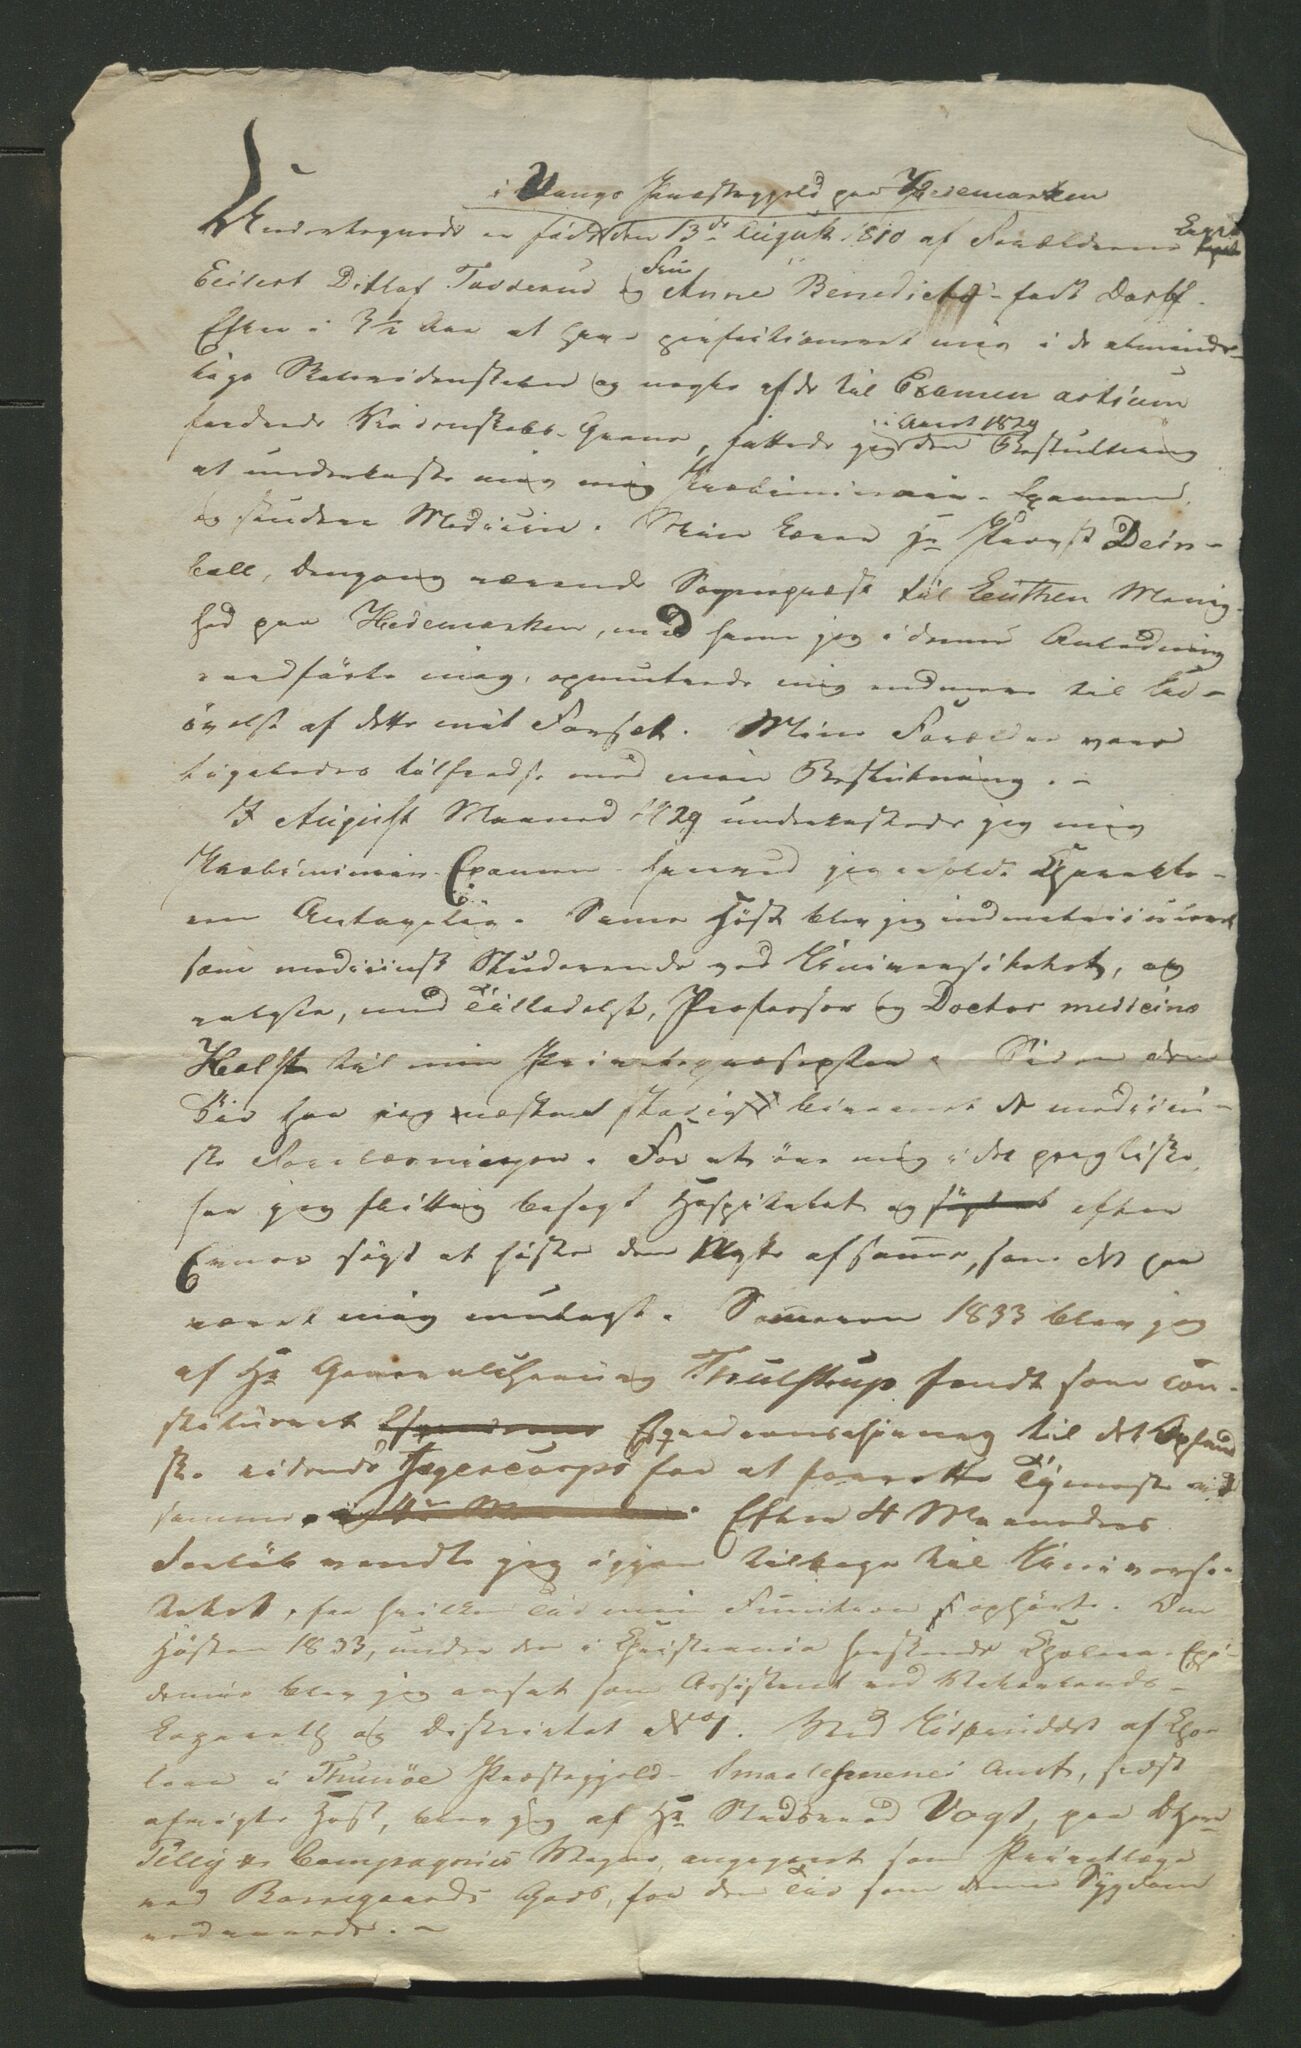 i Vangs Præstegjeld paa Hedemarken
Undertegnede er født den 13de August 1810 af Forældrene Capit
Eilert Ditlef Tadderud og Fru Anne Benedicte født Dorph.
Efter i 3½ Aar at have perfectioneret mig i de alminde-
lige Skolevidenskaber og nogle af de til Examen artium
fordrede Kundskabs-Grene, fattede jeg i Aaret 1829 den Beslutning
at underkaste mig Præliminair-Examen,
og studere Medicin. Min Lærer Hr Provst Dein-
boll, dengang værende Sogneprest til Løiten Menig-
hed paa Hedemarken, med hvem jeg i denne Anledning
raadførte mig, opmuntrede mig endmere til Ud-
øvelse af dette mit Forsæt. Mine Forældre vare
ligeledes tilfreds med min Beslutning. -
I August Maaned 1829 underkastede jeg mig
Præliminair-Examen hvorved jeg erholdt Charakte-
ren Antagelig. Samme Høst blev jeg indmatriculeret
som medicinsk Studerende ved Universitetet, og
valgte, med Tilladelse, Professor og Doctor medicinæ
Holst til min Privatpræceptor. Siden den
Tid har jeg næsten stadigt bivaanet de medicin-
ske Forelæsninger. For at øve mig i det practiske
har jeg flittig besøgt Hospitalet og søgt at efter
Evner søgt at høste den Nytte af samme, som det har
været mig muligt. Sommeren 1833 blev jeg
af Hr Generalchirurg Thulstrup sendt som con-
stitueret Esqvadrons Esqvadronschirurg til det Opland
ske ridende Jægercorps for at forrette Tjeneste ved
samme. Efter 4 Maaneders
Forløb vendte jeg igjen tilbage til Universi-
tetet, fra hvilken Tid min Function ophørte. Om
Høsten 1833, under den i Christiania herskende Cholera-Epi-
demie blev jeg ansat som Assistent ved Vaterlands-
Lazareth og Districtet No 1. Ved Udbruddet af Cho
lera i Thunøe Præstegjeld - Smaalehnenes Amt, sidst
afvigte Høst, blev jeg af Hr Stadsraad Vogt, paa DHrr
Pelly & Compagnies Vegne, engageret som Privatlæge
ved Borregaards Gods, for den Tid som denne Sygdom
vedvarede. -